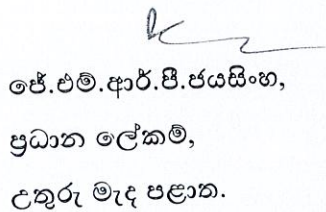 ජේ.එම්.ආර්.පී.ජයසිංහ,
ප්‍රධාන ලේකම්,
උතුරු මැද පළාත.